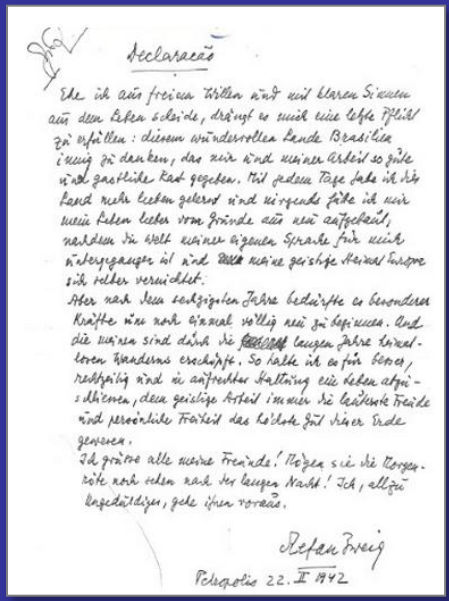 Declaracão
Ehe ich aus freiem Willen und mit klaren Sinnen
aus dem Leben scheide, drängt es mich eine letzte Pflicht
zu erfüllen: diesem wundervollen Lande Brasilien
innig zu danken, das mir und meiner Arbeit so gute
und gastliche Rast gegeben. Mit jedem Tage habe ich dies
Land mehr lieben gelernt und nirgends hätte ich mir
mein Leben lieber vom Grunde aus neu aufgebaut,
nachdem die Welt meiner eigenen Sprache für mich
untergegangen ist und meine geistige Heimat Europa
sich selber vernichtet.
Aber nach dem sechzigsten Jahre bedürfte es besonderer
Kräfte um noch einmal völlig neu zu beginnen. Und
die meinen sind durch die langen Jahre heimat-
losen Wanderns erschöpft. So halte ich es für besser,
rechtzeitig und in aufrechter Haltung ein Leben abzu-
schliessen, dem geistige Arbeit immer die lauterste Freude
und persönliche Freiheit das höchste Gut dieser Erde
gewesen.
Ich grüsse alle meine Freunde! Mögen sie die Morgen-
röte noch sehen nach der langen Nacht! Ich, allzu
Ungeduldiger, gehe ihnen voraus.
Stefan Zweig
Petropolis 22. II 1942